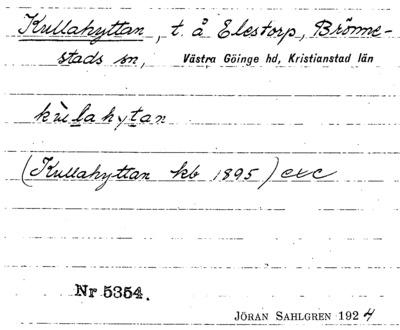 Kullahyttan, t. å Elestorp, Brönne-
stads sn, Västra Göinge hd, Kristianstad län
kùlahytan
(Kullahyttan kb 1895) exc
Nr 5354.
JÖRAN SAHLGREN 1924